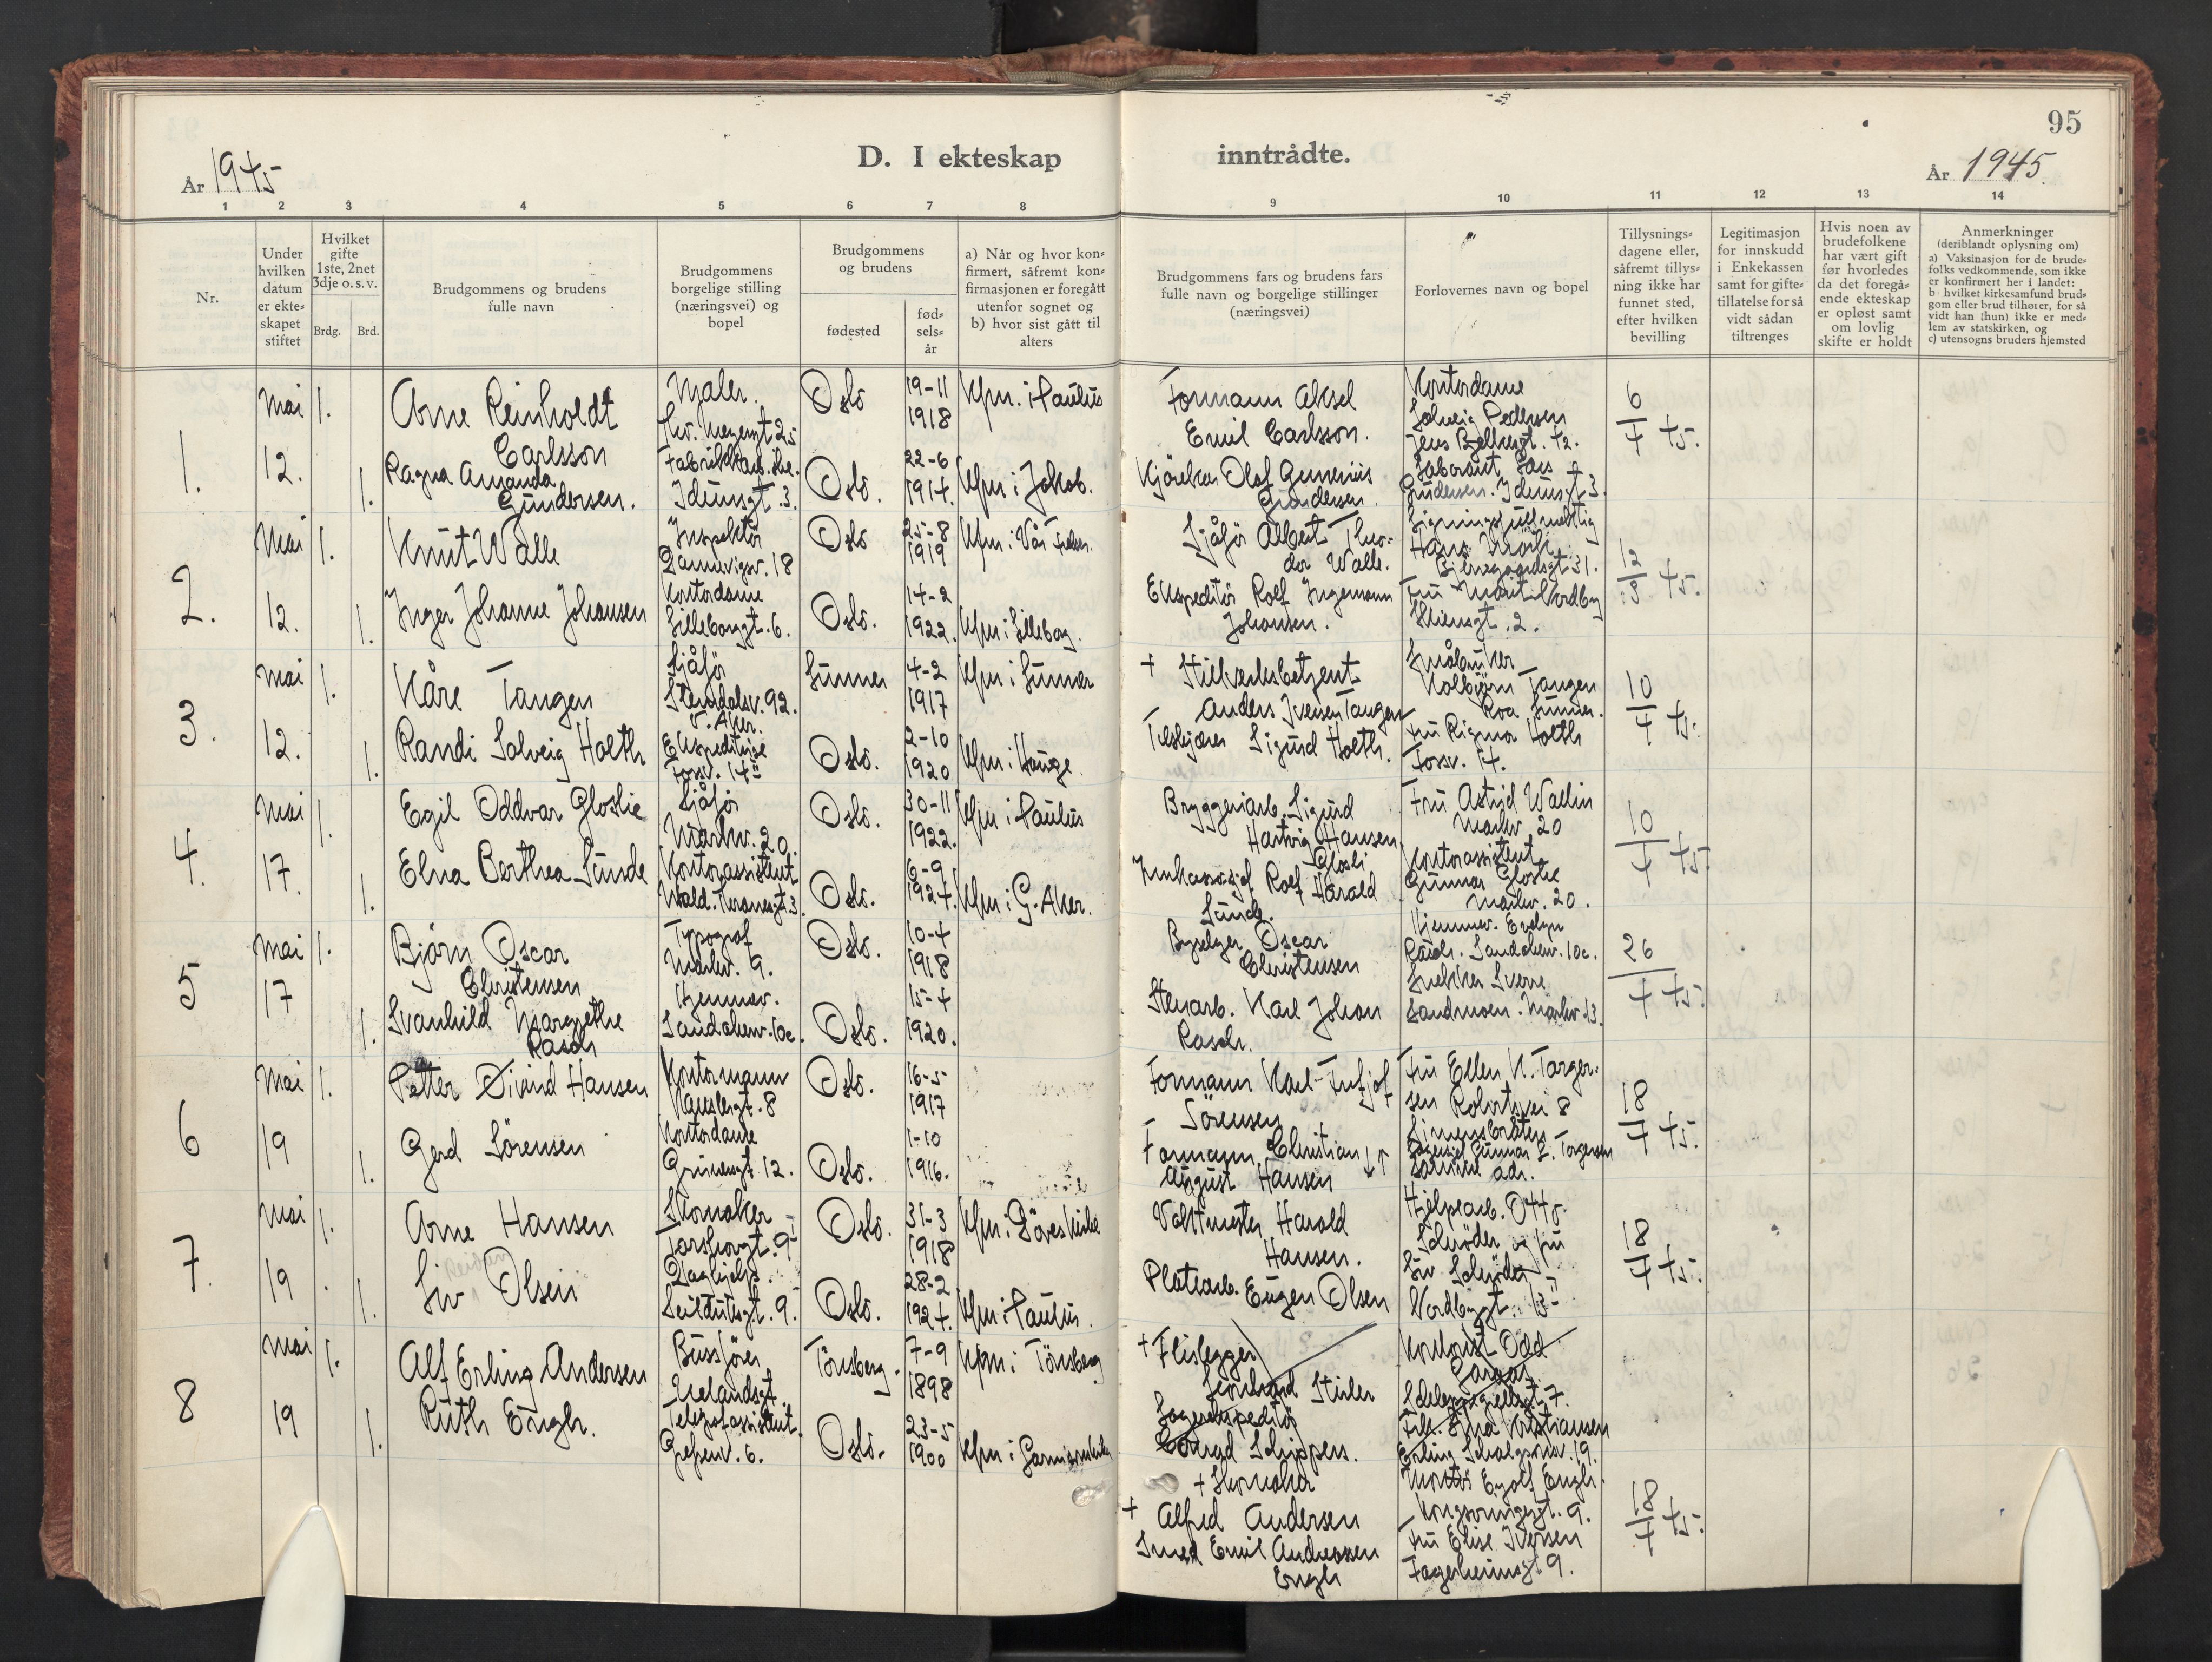 95
D. I ekteskap inntrådte.
År 1945
År 1945.
1 2 3 4 5 6 7 8 9 10 11 12 13 14
Nr.
Under
hvilken
datum
er ekte-
skapet
stiftet
Hvilket
gifte
1ste, 2net
3dje o. s. v.
Brdg. Brd.
Brudgommens og brudens
fulle navn
Brudgommens
borgelige stilling
(næringsvei) og
bopel
Brudgommens
og brudens
fødested
fød-
sels-
år
a) Når og hvor kon-
firmert, såfremt kon-
firmasjonen er foregått
utenfor sognet og
b) hvor sist gått til
alters
Brudgommens fars og brudens fars
fulle navn og borgelige stillinger
(næringsvei)
Forlovernes navn og bopel
Tillysnings-
dagene eller,
såfremt tillys-
ning ikke har
funnet sted,
efter hvilken
bevilling
Legitimasjon
for innskudd
i Enkekassen
samt for gifte-
tillatelse for så
vidt sådan
tiltrenges
Hvis noen av
brudefolkene
har vært gift
før hvorledes
da det foregå-
ende ekteskap
er opløst samt
om lovlig
skifte er holdt
Anmerkninger
(deriblandt oplysning om)
a) Vaksinasjon for de brude-
folks vedkommende, som ikke
er konfirmert her i landet:
b hvilket kirkesamfund brud-
gom eller brud tilhører, for så
vidt han (hun) ikke er med-
lem av statskirken, og
c) utensogns bruders hjemsted
1.
Mai 12.
1.
Arne Reinholdt
Carlsson
Maler.
Oslo
19-11
1918
Kfm. i Paulus
Formann Aksel
Emil Carlsson.
Kontordame
Solveig Pedersen
Jens Bjelkesgt. 42.
6/4 45.
1.
Ragna Amanda
Gundersen.
Fabrikkarb.ske.
Idunsgt. 3.
Oslo.
22-6
1914.
Kfm i Jakob.
Kjørekar Olaf Gunerius
Gundersen.
Laborant Lars
Gundersen. Idunsgt 3.
2.
Mai 12.
1.
Knut Walle
Inspektør
18
Oslo
25-8
1919
Kfm. i Vår Frelser.
Sjåfør Albert Theo-
dor Walle.
Hans
31.
12/3 45.
1.
Inger Johanne Johansen
Kontordame
Lilleborggt. 6.
Oslo.
14-2
1922.
Kfm i Lilleborg.
Ekspeditør Rolf Ingemann
Johansen.
Fru Marit Nordby
Skiensgt. 2.
3.
Mai 12.
1.
Kåre Tangen
Sjåfør
92.
V. Aker.
Lunner
4-2
1917
Kfm i Lunner
+ Stillverksbetjent
Anders Iversen Tangen
Småbruker
Kolbjørn Tangen
Roa Lunner.
10/4 45.
1.
Randi Solveig Holth
Ekspeditrise
Forsv. 14
Oslo.
2-10
1920
Kfm i Hauge.
Sigurd Holth.
Fru Rigmor Holth
Forsv. 14.
4.
Mai 17.
1.
Egil Oddvar Gloslie
Sjåfør
Markv. 20.
Oslo.
30-11
1922.
Kfm i Paulus
Bryggeriarb. Sigurd
Hartvig Hansen
Glosli
Fru Astrid Wallin
Markv. 20
10/4 45.
1.
Elna Berthea Sunde
Kontorassistent
Wald. Thranesgt 3.
Oslo.
6-9
1924.
Kfm i G. Aker.
Rolf Harald
Sunde.
Kontorassistent
Gunnar Gloslie
Markv. 20.
5
Mai 17
1.
Bjørn Oscar
Christensen
Typograf
Markv. 9.
Oslo.
10-4
1918
Oscar
Christensen
Hjemmev. Evelyn
Rasch. Sandakerv. 10c.
26/4 45.
1.
Svanhild Margrethe
Rasch
Hjemmev.
Sandakerv. 10c.
Oslo.
15-4
1920.
Stenarb. Karl Johan
Rasch.
Snekker Sverre
Sandmoen. Markv 23.
6
Mai 19
1.
Petter Øivind Hansen
Kontormann
8
Oslo.
16-5
1917
Formann Karl Fritjof
Sørensen
Fru Ellen K. Torger-
sen 8
18/4 45.
1.
Gerd Sørensen
Kontordame
Grünersgt 12.
Oslo.
1-10
1916.
Formann Christian ↓↑
August Hansen
Simensbråten
Gunnar L. Torgersen
samme adr.
7.
Mai 19.
1.
Arne Hansen
Skomaker
Torshovgt. 9
Oslo.
31-3
1918
Kfm. i Døves Kirke
Vaktmester Harald
Hansen.
Hjelpearb. Otto
Schrøder og fru
18/4 45.
1.
Siv Olsen
Daghjelp.
Seilduksgt. 9.
Oslo.
28-2
1924.
Kfm i Paulus.
Platearb. Eugen Olsen
Siv Schrøder
Nordbygt. 13
8
Mai 19
1.
Alf Erling Andersen
Bussfører
Uelandsgt
Tønsberg.
7-9
1898
Kfm i Tønsberg
+ Flislegger
Odd
7.
1.
Ruth Engh.
Telegrafassistent.
Grefsenv. 6.
Oslo.
23-5
1900
Kfm i Garnisonskirken
Lagerekspeditør
Conrad Schippers.
Frk. Kristiansen
19.
+ Skomaker
+ Alfred Andersen
Eyolf Engh.
Kongsvingergt. 9.
18/4 45.
Smed Emil Andreassen
Engh
Fru Elise Iversen
Fagerheimsgt 9.